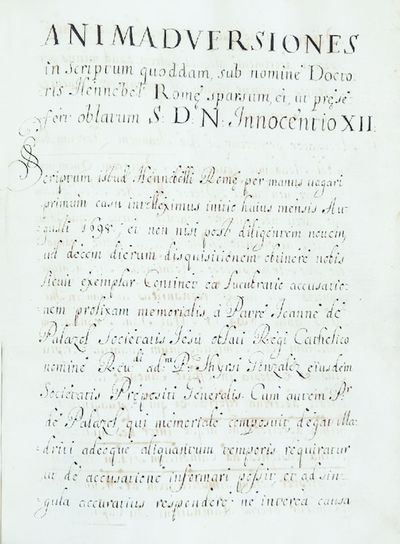 ANIMADVERSIONES
in scriptum quoddam, sub nomine Docto-
ris Hennebel Romę sparsum, ei, ut pręse
fert oblatum S. D. N. Innocentio XII.
Scriptum istud Hennebelli Romę per manus vagari
primum casu intelleximus initio huius mensis Au-
gusti 1698; et non nisi post diligentem novem,
ad decem dierum disquisitionem obtinere nobis
licuit exemplar. Continet ea lucubratio accusatio-
nem prolixam memorialis, à Patre Jeanne de
Palazol Societatis Jesu oblati Regi Catholico
nomine Reu.di ad.m P. Thyrsi Gonzalez eiusdem
Societatis Prepositi Generalis. Cum autem Pr
de Palazol, qui memoriale composuit, degat Ma-
driti adeoque aliquantum temporis requiratur
ut de accusatione informari possit et ad sin-
gula accuratius respondere; ne interea causa